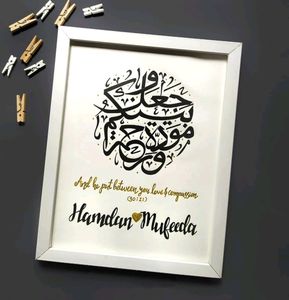 وجعل بينكم مودة ورحمة
And he put between you love & compassion
(30:21)
Hamdan Mufeeda